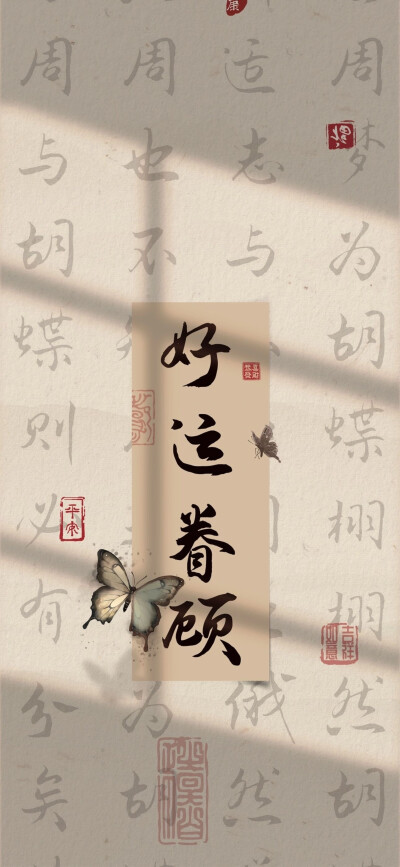 周梦为胡蝶栩栩然胡
适志与
俄然
周也不
为胡
周与胡蝶则必有分矣
好运眷顾
平安
吉祥
如意